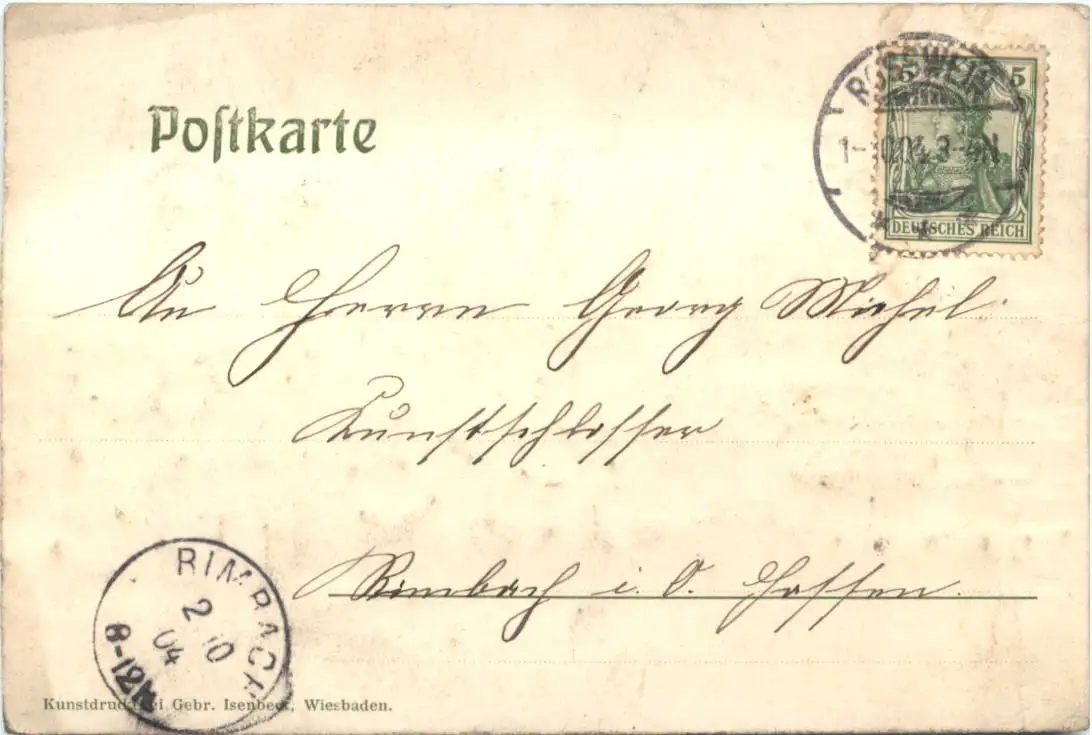 Postkarte
ROSSWEIN
1-10.04.3-4N
5 5
DEUTSCHES REICH
An Herrn Georg Michel
Kunstschlosser
Rimbach i. O. Hessen.
RIMBACH
2 10
04
8-12V
Kunstdruckerei Gebr. Isenbeck, Wiesbaden.